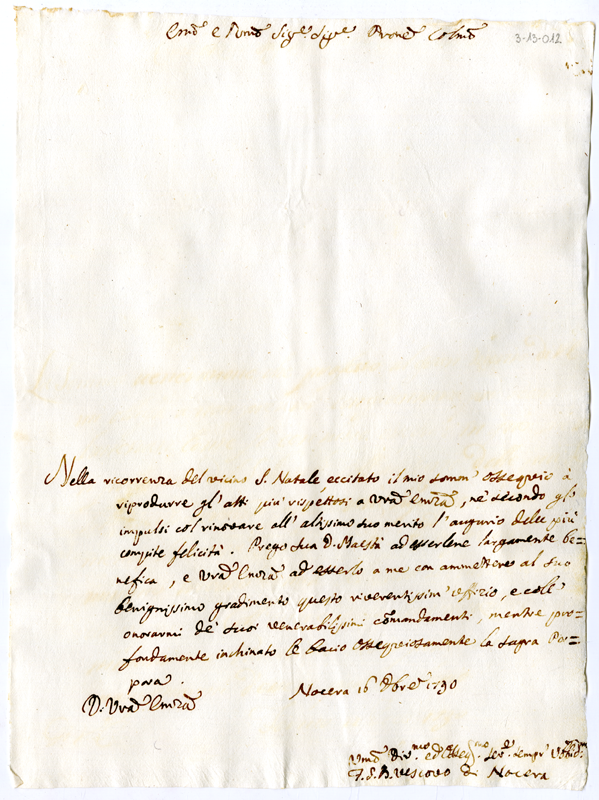 Emo e Rmo Sigr. Sigr. Prone Colmo
3-13-012
Nella ricorrenza del vicino S. Natale, eccitato il mio sommo Ossequio à
riprodurre gl'atti più rispettosi a Vra Emza, ne secondo gl'
impulsi col rinovare all'altissimo suo merito l'augurio delle più
compite felicità. Prego Sua D. Maestà ad esserlene largamente be=
nefica, e Vra Emza ad esserlo a me con ammettere al suo
benignissimo gradimento questo riverentissimo uffizio, e colle
onorarmi de' suoi venerabilissimi comandamenti, mentre pro=
fondamente inchinato le bacio Ossequiosamente la sagra Por=
pora.
D: Vra Emza
Nocera 16 Xbre 1790
Umo Divmo ed Ossegmo Serv sempre
F. S. B. Vescovo di Nocera